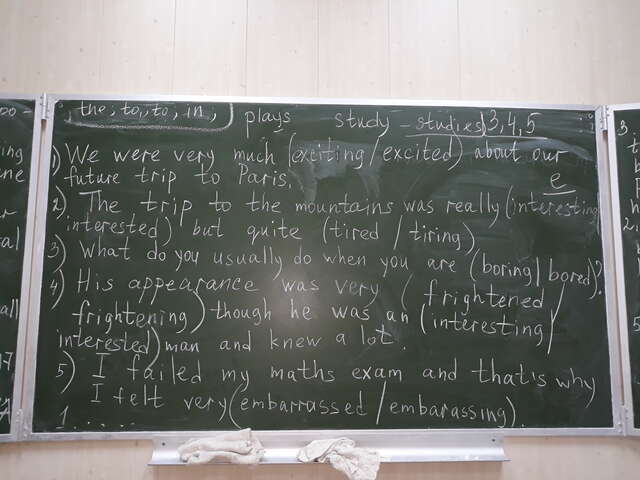 the, to, to, in,
plays study - studies 3,4,5
1) We were very much (exciting/excited) about our
future trip to Paris.
e
2) The trip to the mountains was really (interesting/
interested) but quite (tired/tiring)
3) What do you usually do when you are (boring/bored)?
4) His appearance was very (frightened/
frightening) though he was an (interesting/
interested) man and knew a lot.
5) I failed my maths exam and that's why
I felt very (embarrassed/embarassing).
1......